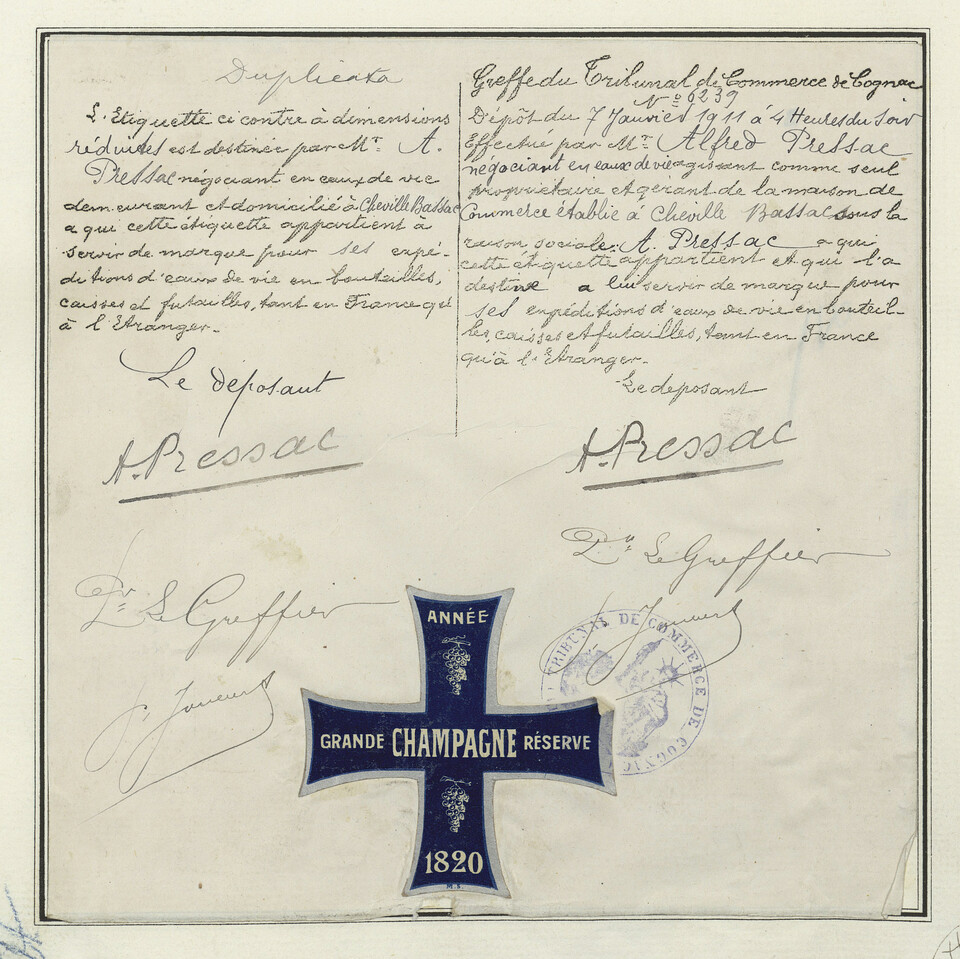 Duplicata
L'Etiquette ci contre à dimensions
réduites est destinée par Mr. A.
Pressac négociant en eaux de vie
demeurant et domicilié à Cheville Bassac
a qui cette étiquette appartient a
servir de marque pour ses expé-
ditions d'eaux de vie en bouteilles,
caisses et futailles, tant en France qu'
à l'Etranger.-
Le déposant
A. Pressac
Pr. Le Greffier
Greffe du Tribunal de Commerce de Cognac
N° 6239
Dépôt du 7 Janvier 1911 à 4 Heures du Soir
Effectué par Mr. Alfred Pressac
négociant en eaux de vie agissant comme seul
propriétaire et gérant de la maison de
Commerce établie à Cheville Bassac sous la
raison sociale: A. Pressac a qui
cette étiquette appartient et qui l'a
destine a lui servir de marque pour
ses expéditions d'eaux de vie en bouteil-
les, caisses et futailles, tant en France
qu'à l'Etranger.-
Le deposant
A. Pressac
Pr. Le Greffier
TRIBUNAL DE COMMERCE DE COGNAC
ANNÉE
GRANDE CHAMPAGNE RÉSERVE
1820